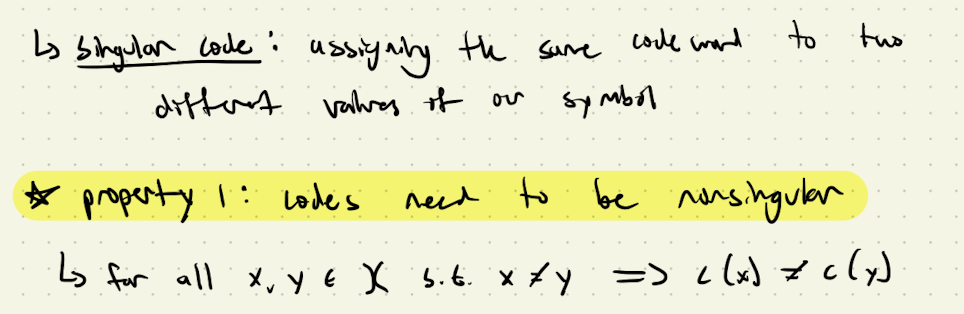 ↳ singular code : assigning the same codeword to two
different values of our symbol
☆ property 1 : codes need to be nonsingular
↳ for all x, y ∈ X s.t. x ≠ y => c(x) ≠ c(y)